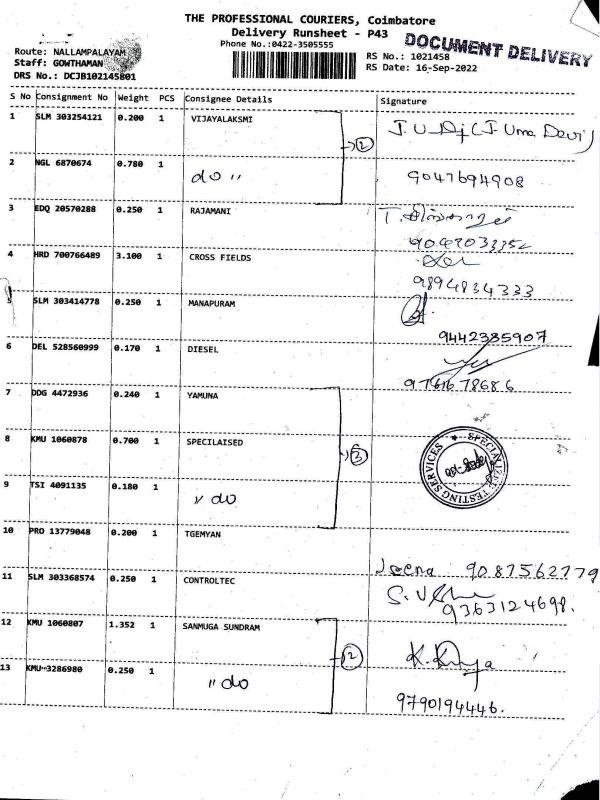 THE PROFESSIONAL COURIERS, Coimbatore
Delivery Runsheet - P43
Phone No.:0422-3505555
DOCUMENT DELIVERY
Route: NALLAMPALAYAM
Staff: GOWTHAMAN
DRS No.: DCJB102145801
RS No.: 1021458
RS Date: 16-Sep-2022
S No Consignment No Weight PCS Consignee Details Signature
1 SLM 303254121 0.200 1 VIJAYALAKSMI (J. Uma Devi)
→②
2 NGL 6870674 0.780 1 do " 9047694908
3 EDQ 20570288 0.250 1 RAJAMANI
4 HRD 700766489 3.100 1 CROSS FIELDS
9894834333
5 SLM 303414778 0.250 1 MANAPURAM
9442385907
6 DEL 528560999 0.170 1 DIESEL
97616 78686
7 DDG 4472936 0.240 1 YAMUNA
8 KMU 1060878 0.700 1 SPECILAISED
③
SPECIALIZED TESTING SERVICES
9 TSI 4091135 0.180 1 " do
10 PRO 13779048 0.200 1 TGEMYAN
Jeena 9087562779
11 SLM 303368574 0.250 1 CONTROLTEC
9363124698.
12 KMU 1060807 1.352 1 SANMUGA SUNDRAM
②
13 KMU 3286980 0.250 1 " do
9790194446.